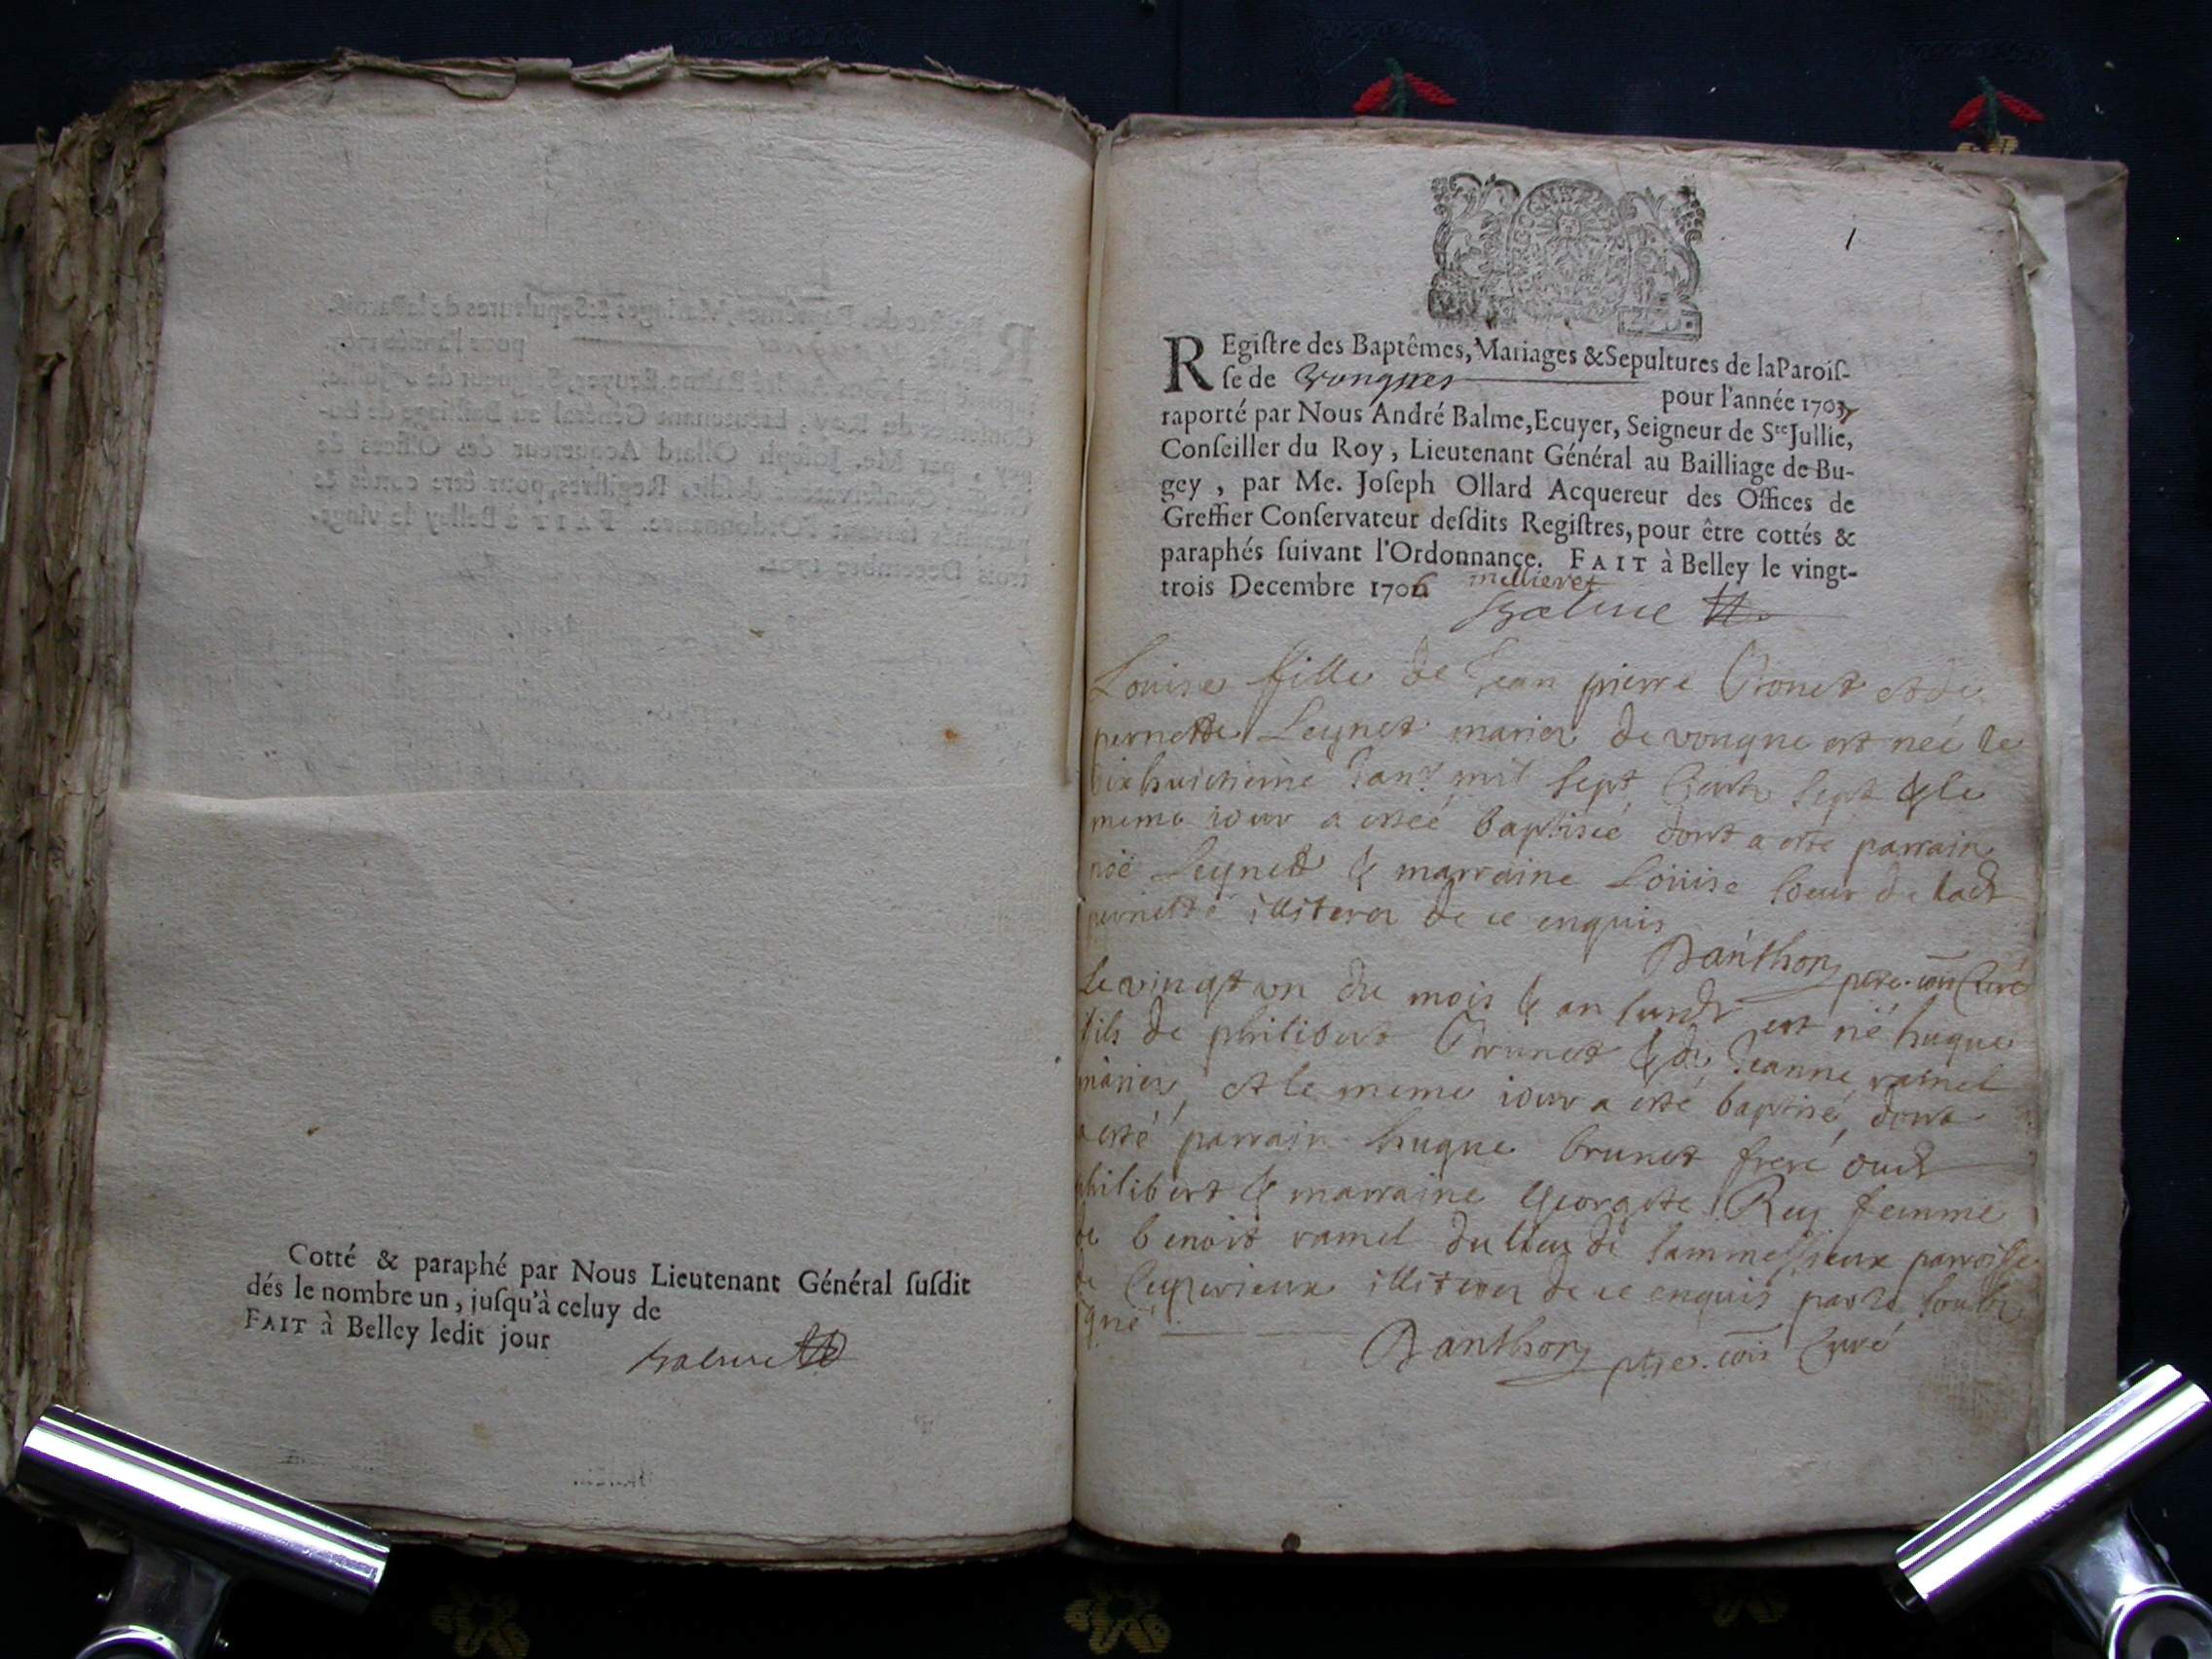 Cotté & paraphé par Nous Lieutenant Général ſuſdit
dés le nombre un, juſqu'à celuy de
FAIT à Belley ledit jour
Balme
1
REgiſtre des Baptêmes, Mariages & Sepultures de la Paroiſ-
ſe de Vongnes pour l'année 1707
raporté par Nous André Balme, Ecuyer, Seigneur de Ste Jullie,
Conſeiller du Roy, Lieutenant Général au Bailliage de Bu-
gey, par Me. Joſeph Ollard Acquereur des Offices de
Greffier Conſervateur deſdits Regiſtres, pour être cottés &
paraphés ſuivant l'Ordonnance. FAIT à Belley le vingt-
trois Decembre 1706
Balme
Louise fille de Jean pierre et de
pernette Leynet mariez de vongne est neé le
dixhuictieme Janr mil sept cents sept & le
meme iour a esteé baptiseé dont a esté parrain
noe Leynet & marraine Louise soeur de ladt
pernette illiterez de ce enquis
Danthon curé
Le vingt un du mois & an susdt est né hugue
fils de philibert Brunet & de Jeanne ramel
mariez, et le meme iour a esté baptisé, dont
a esté parrain hugue brunet frere dudt
philibert & marraine Georgete Rey femme
de benoit ramel du lieu de parroisse
de Ceyzerieux illiterez de ce enquis par le soubs
signé
Danthon curé